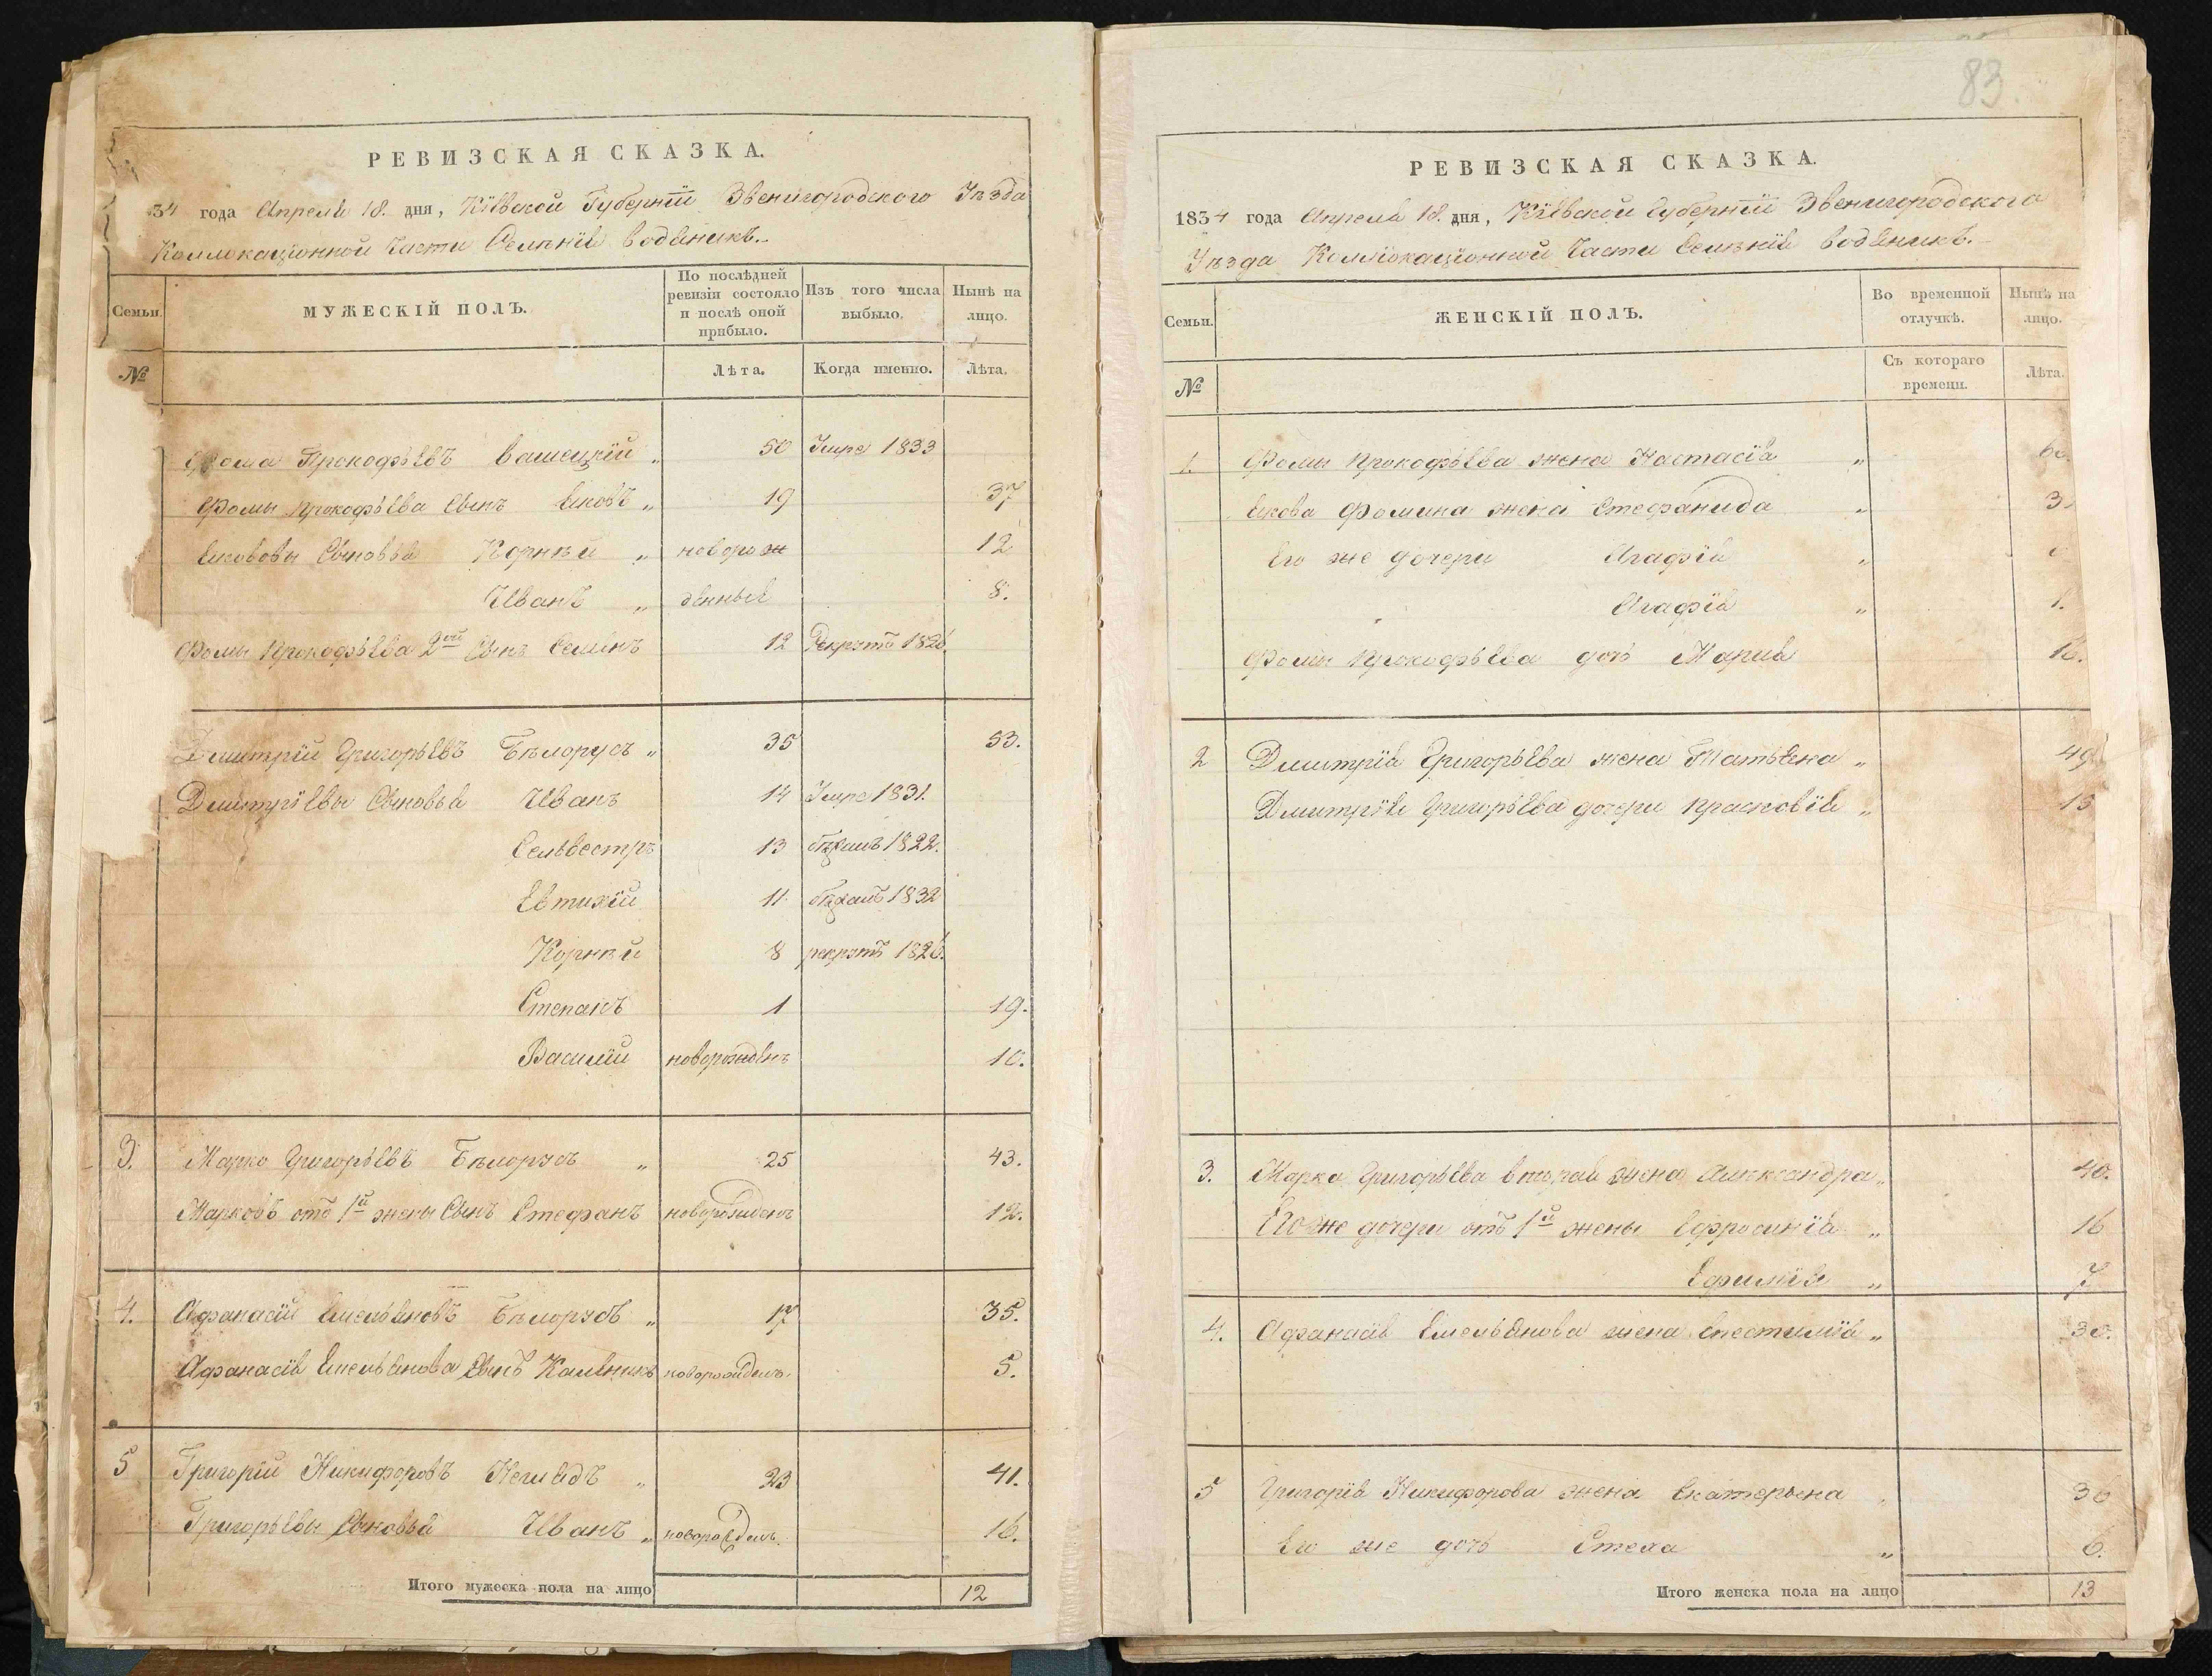 РЕВИЗСКАЯ СКАЗКА.
34 года Апреля 18. дня, Кіевской Губерніи Звенигородского Уѣзда
Коллокаціонной Части Селѣнія Водяникъ.
Семьи.
МУЖЕСКІЙ ПОЛЪ.
По послѣдней ревизіи состояло и послѣ оной прибыло.
Изъ того числа выбыло.
Нынѣ на лицо.
№
Лѣта.
Когда именно.
Лѣта.
Фома Прокофьевъ 50 Умре 1833
Фомы Прокофьева Сынъ Яковъ „ 19 37
Яkововы Сыновья Корнѣй „ новорож 12
Иванъ „ денные 8.
Фомы Прокофьева 2ой Сынъ Семенъ 12 Рекрутъ 1826.
Дмитрій Григорьевъ Бѣлорусъ „ 35 53.
Дмитріевы Сыновья Иванъ 14 Умре 1831.
Сельвестръ 13 бѣжалъ 1822.
Евтихій 11 бѣжалъ 1832
Корнѣй 8 рекрутъ 1826.
Степанъ 1 19.
Василій новорожденъ 10.
3. Марко Григорьевъ Бѣлорусъ „ 25 43.
Марковъ отъ 1й жены Сынъ Стефанъ новорожденъ 12.
4. Афанасій Емельяновъ Бѣлорусъ „ 17 35.
Афанасія Емельянова Сынъ Каленикъ новорожденъ. 5.
5 Григорій Никифоровъ 23 41.
Григорьевы Сыновья Иванъ „ новорожденъ. 16.
Итого мужеска пола на лицо 12
83.
РЕВИЗСКАЯ СКАЗКА.
1834 года Апреля 18. дня, Кіевской Губерніи Звенигородского
Уѣзда Коллокаціонной Части Селѣнія Водяникъ.
Семьи.
ЖЕНСКІЙ ПОЛЪ.
Во временной отлучкѣ.
Нынѣ на лицо.
№
Съ котораго времени.
Лѣта.
1. Фомы Прокофьева жена Настасія „
Якова Фомина жена Стефанида „
Его же дочери Агафія „
Агафія „
Фомы Прокофьева дочь Марія 16.
2 Дмитрія Григорьева жена Татьяна „ 49
Дмитрія Григорьева дочери Прасковія „ 13
3. Марка Григорьева вторая жена Александра „ 40.
Его же дочери отъ 1й жены Ефросинія „ 16
Ефимія „ 7
4. Афанасія Емельянова жена „ 30.
5 Григорія Никифорова жена Екатерына „ 36
Его же дочь Стеха „ 6.
Итого женска пола на лицо 13